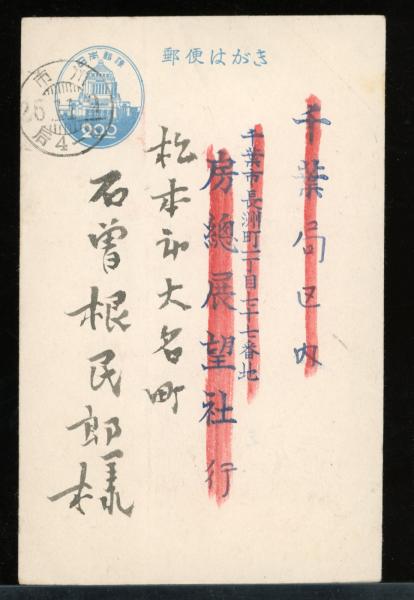 郵便はがき
千葉局区内
千葉市長洲町一丁目七十七番地
房總展望社 行
松本市大名町
石曽根民郎様
日本郵便
200
市川
26
局
4